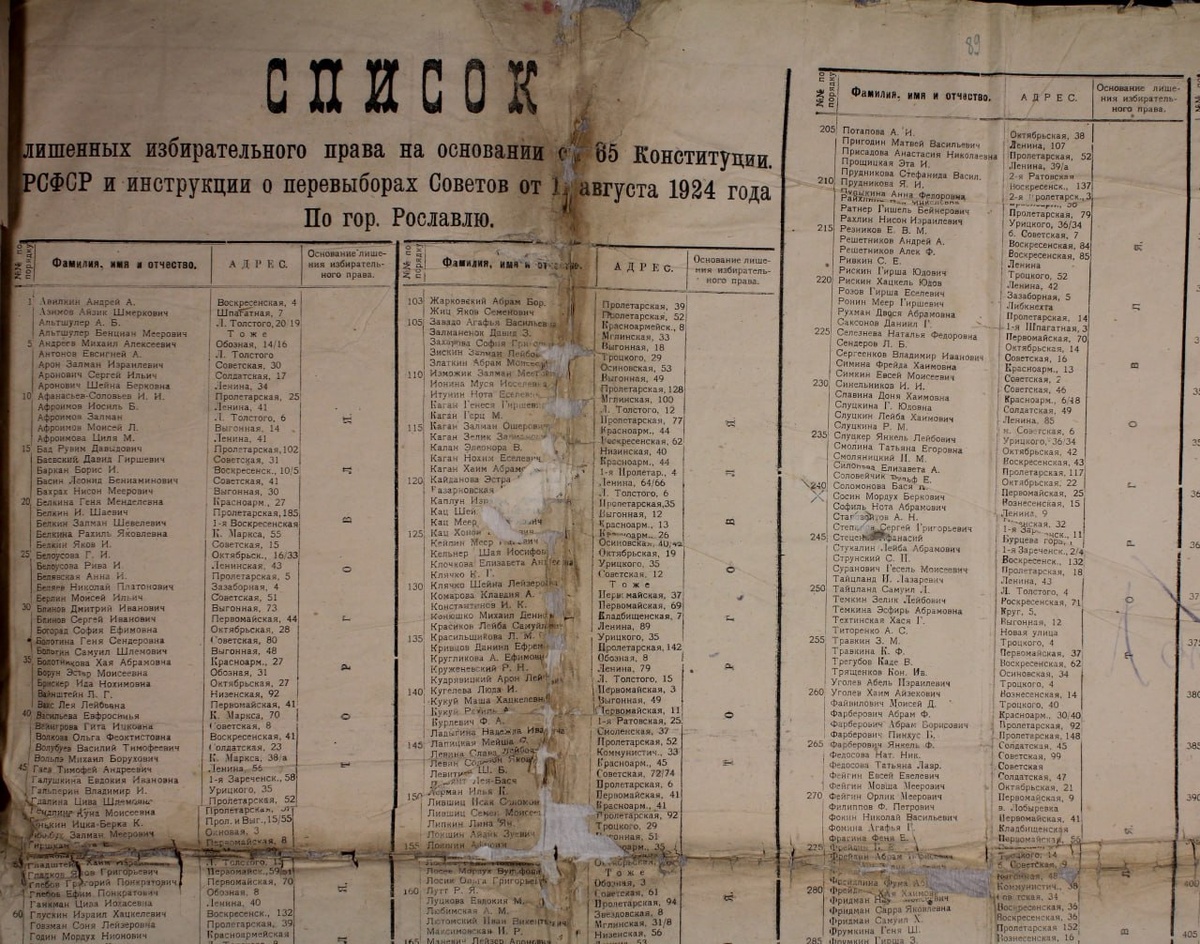 89
СПИСОК
лишенных избирательного права на основании 65 Конституции.
РСФСР и инструкции о перевыборах Советов от августа 1924 года
По гор. Рославлю.
№№ по порядку Фамилия, имя и отчество. АДРЕС. Основание лишения избирательного права.
1 Авилкин Андрей А. Воскресенская, 4
Азимов Айзик Шмеркович Шпагатная, 7
Альтшулер А. Б. Л. Толстого, 20/19
Альтшулер Бенциан Меерович Тоже
5 Андреев Михаил Алексеевич Обозная, 14/16
Антонов Евсигней А. Л. Толстого
Арон Залман Израилевич Советская, 30
Аронович Сергей Ильич Солдатская, 17
Аронович Шейна Берковна Ленина, 34
10 Афанасьев-Соловьев И. И. Пролетарская, 25
Афроимов Иосиль Б. Ленина, 41
Афроимов Залман Л. Толстого, 6
Афроимов Моисей Л. Выгонная, 14
Афроимова Циля М. Ленина, 41
15 Бад Рувим Давыдович Пролетарская, 102
Баевский Давид Гиршевич Советская, 31
Баркан Борис И. Воскресенск., 10/5
Басин Леонид Бениаминович Советская, 41
Бахрах Нисон Меерович Выгонная, 30
20 Белкина Геня Менделевна Красноарм., 27
Белкин И. Шаевич Пролетарская, 185
Белкин Залман Шевелевич 1-я Воскресенская
Белкина Рахиль Яковлевна К. Маркса, 55
Белкин Яков И. Советская, 15
25 Белоусова Г. И. Октябрьск., 16/33
Белоусова Рива И. Ленинская, 43
Белявская Анна И. Пролетарская, 5
Беляев Николай Платонович Зазаборная, 4
Берлин Моисей Ильич Советская, 51
30 Блинов Дмитрий Иванович Выгонная, 73
Блинов Сергей Иванович Первомайская, 44
Богорад София Ефимовна Октябрьская, 28
Болотина Геня Сендеровна Советская, 80
Болотин Самуил Шлемович Выгонная, 48
35 Болотникова Хая Абрамовна Красноарм., 27
Борун Эстер Моисеевна Обозная, 31
Брискер Ида Нохимовна Октябрьская, 27
Вайнштейн Л. Г. Низенская, 92
Вакс Лея Лейбовна Первомайская, 41
40 Васильева Евфросинья К. Маркса, 70
Вейнгрова Гита Ицковна Советская, 8
Волкова Ольга Феоктистовна Воскресенская, 41
Волубуев Василий Тимофеевич Солдатская, 23
Вольпэ Михаил Борухович К. Маркса, 38/а
45 Гаев Тимофей Андреевич Ленина, 56
Галушкина Евдокия Ивановна 1-я Зареченск., 58
Гальперин Владимир И. Урицкого, 35
Цива Пролетарская, 52
Куна Моисеевна Прол. и Выг., 15/55
Ицка-Берка К.
Залман Меерович Основая, 3
Первомайская, 8
Л. Толстого,
Гладков Яков Григорьевич Первомайск.,
Глебов Григорий Понкратович Первомайская, 70
Глебов Ефим Понкратович Обозная, 8
Ганкман Цива Иоасевна Ленина, 40
60 Глускин Израил Хацкелевич Воскресенск., 132
Говзман Соня Лейзеровна Пролетарская, 39
Годин Мордух Нионович Красноармейская
№№ по порядку Фамилия, имя и АДРЕС. Основание лишения избирательного права.
103 Жарковский Абрам Бор. Пролетарская, 39
Жиц Яков Семенович Пролетарская, 52
105 Завадо Агафья Васильевна Красноармейск., 8
Залманенок Давид З. Мглинская, 33
Захарова София Выгонная, 18
Зискин Залман Лейбов Троцкого, 29
Златкин Абрам Моисеев Осиновская, 53
110 Изможик Залман Выгонная, 49
Ионина Муся Пролетарская, 128
Итунин Нота Мглинская, 100
Каган Генеся Гиршевна Л. Толстого, 12
Каган Герц М. Пролетарская, 77
115 Каган Залман Ошерович Красноарм., 44
Каган Зелик Воскресенская, 62
Калан Элеонора В. Низинская, 40
Каган Нохим Красноарм., 44
Каган Хаим Абрамо 1-я Пролетар., 4
120 Кайданова Эстра Ленина, 64/66
Казарновская Л. Толстого, 6
Каплун Пролетарская, 35
Кац Шей Выгонная, 12
Кац Меер Красноарм., 13
125 Кац Хонон 26
Кейлин Меер Осиновская,
Кельнер Шая Иосифов Октябрьская, 19
Клочкова Елизавета Урицкого, 35
Клячко К. Г. Советская, 12
130 Клячко Шейна Лейзеровна Тоже
Комарова Клавдия А. Первомайская, 37
Константинов И. К. Первомайская, 69
Конюшко Михаил Кладбищенская, 7
Красиков Лейба Самуил Ленина, 89
135 Красильщикова Л. М. Урицкого, 35
Кривцов Данила Ефрем Пролетарская, 142
Кругликова А. Ефимовна Обозная, 8
Круженевский Р. Н. Ленина, 79
Кудрявицкий Арон Лей Л. Толстого, 15
140 Кугелева Люда И. Первомайская, 3
Кукуй Маша Хацкелевна Выгонная, 49
Кукуй Первомайская, 11
Курлевич Ф. А. 1-я Ратовская, 25
Ладыгина Надежда Смоленская, 37
145 Лапицкая Мейша Пролетарская, 52
Левина Слава Коммунистич., 33
Левин Красноарм., 45
Левитин Ш. Б. Советская, 72/74
Лея-Бася Пролетарская, 6
150 Лерман Илья К. Первомайская, 41
Лившиц Исая Красноарм., 41
Лившиц Семен Моисе Пролетарская, 92
Липкин Лина Ян. Троцкого, 29
Локшин Айзик Зуевич Выгонная, 51
155 Локшин
Лосик Мордух
Лосин Ольга Григорьевна Тоже
Обозная, 3
160 Лутт Р. Я. Советская, 61
Луцкова Евдокия М. Пролетарская, 94
Любимская А. М. Звездовская, 8
Лютомский Иван Мглинская, 31/8
Максимовская И. Р. Низенская, 56
165 Маневич Лейзер
№№ по порядку Фамилия, имя и отчество. АДРЕС. Основание лишения избирательного права.
205 Потапова А. И. Октябрьская, 38
Пригодин Матвей Васильевич Ленина, 107
Присадова Анастасия Николаевна Пролетарская, 52
Прощицкая Эта И. Ленина, 39/а
Прудникова Стефанида Васил. 2-я Ратовская
210 Прудникова Я. И. Воскресенск., 137
Пузыкина Анна Федоровна 2-я Пролетарск., 3
Ратнер Гишель Бейнерович Пролетарская, 79
Рахлин Нисон Израилевич Урицкого, 36/34
215 Резников Е. В. М. б. Советская, 7
Решетников Андрей А. Воскресенская, 84
Решетников Алек Ф. Воскресенская, 85
Ривкин С. Е. Ленина
Рискин Гирша Юдович Троцкого, 52
220 Рискин Хацкель Юдов Ленина, 42
Розов Гирша Еселевич Зазаборная, 5
Ронин Меер Гиршевич Либкнехта
Рухман Двося Абрамовна Пролетарская, 14
Саксонов Даниил Г. 1-я Шпагатная, 3
225 Селезнева Наталья Федоровна Первомайская, 70
Сендеров Л. Б. Октябрьская, 14
Сергеенков Владимир Иванович Советская, 16
Симина Фрейда Хаимовна Красноарм., 13
Симкин Евсей Моисеевич Советская, 2
230 Синельников И. И. Советская, 46
Славина Доня Хаимовна Красноарм., 6/48
Слуцкина Г. Юдовна Солдатская, 49
Слуцкин Лейба Хаимович Ленина, 85
Слуцкина Р. М. м. Советская, 6
235 Слуцкер Янкель Лейбович Урицкого, 36/34
Смолина Татьяна Егоровна Октябрьская, 42
Смоляницкий Н. М. Воскресенская, 43
Елизавета А. Пролетарская, 117
Соловейчик Е. Октябрьская, 22
240 Соломонова Бася Первомайская, 25
Сосин Мордух Беркович Вознесенская, 15
Софиль Нота Абрамович Ленина, 9
А. Н. 32
Сергей Григорьевич 11
245 Афанасий Бурцева гора,
Стукалин Лейба Абрамович 1-я Зареченск., 2/4
Струнский С. П. Воскресенск., 132
Суранович Гесель Моисеевич Пролетарская, 18
Тайцланд И. Лазаревич Ленина, 43
250 Тайцланд Самуил Л. Л. Толстого, 4
Темкин Зелик Лейбович Воскресенская, 71
Темкина Эсфирь Абрамовна Круг, 5
Техтинская Хася Г. Выгонная, 12
Титоренко А. С. Новая улица
255 Травкин З. М. Троцкого, 4
Травкина К. Ф. Первомайская, 37
Трегубов Каде В. Воскресенская, 62
Трященков Кон. Ив. Осиновская, 34
Уголев Абель Израилевич Троцкого, 4
260 Уголев Хаим Айзекович Вознесенская, 14
Файвилович Моисей Д. Троцкого, 40
Фарберович Абрам Ф. Красноарм., 30/40
Фарберович Абрам Борисович Пролетарская, 92
Фарберович Пинхус К. Пролетарская, 148
265 Фарберович Янкель Ф. Солдатская, 45
Федосова Нат. Ник. Советская, 99
Федосова Татьяна Лавр. Советская
Фейгин Евсей Евелевич Солдатская, 47
Фейгин Мовша Меерович Октябрьская, 21
270 Фейгин Орлик Меерович Первомайская, 9
Филиппов Ф. Петрович в. Лобыревка
Фокин Николай Васильевич Первомайская, 41
Фомина Агафья Г. Кладбищенская
Фрагина Феня Е. Первомайская,
225 14
Фрейдин Абрам Советская, 9
Коммунистич., 38
280 Фрейд Советская, 34
Фридман Воскресенская, 36
Фридман Сарра Яковлевна Воскресенская, 36
Фридман Самуил Х. Пролетарская, 152
Фрумкина Геня Ш. Вознесенская, 16
285 Фрумкин Гирша З.
380
390
400
405